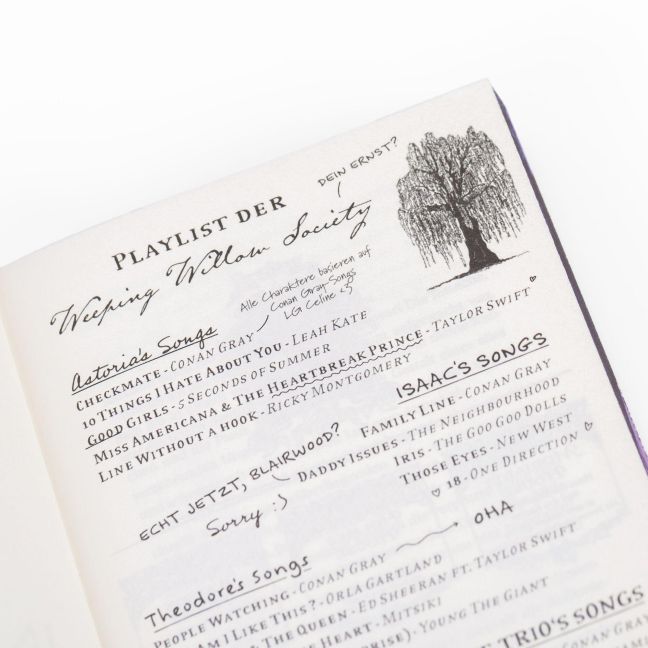 DEIN ERNST?
PLAYLIST DER
Weeping Willow Society
Alle Charaktere basieren auf
Conan Gray Songs
LG Celine <3
Astoria's Songs
CHECKMATE - CONAN GRAY
10 THINGS I HATE ABOUT YOU - LEAH KATE
GOOD GIRLS - 5 SECONDS OF SUMMER
MISS AMERICANA & THE HEARTBREAK PRINCE - TAYLOR SWIFT ♡
LINE WITHOUT A HOOK - RICKY MONTGOMERY
ISAAC'S SONGS
FAMILY LINE - CONAN GRAY
DADDY ISSUES - THE NEIGHBOURHOOD
IRIS - THE GOO GOO DOLLS
THOSE EYES - NEW WEST
♡ 18 - ONE DIRECTION ♡
ECHT JETZT, BLAIRWOOD?
Sorry :)
OHA
Theodore's Songs
PEOPLE WATCHING - CONAN GRAY
AM I LIKE THIS? - ORLA GARTLAND
& THE QUEEN - ED SHEERAN FT. TAYLOR SWIFT
HEART - MITSKI
) - YOUNG THE GIANT
TRIO'S SONGS
CONAN GRAY